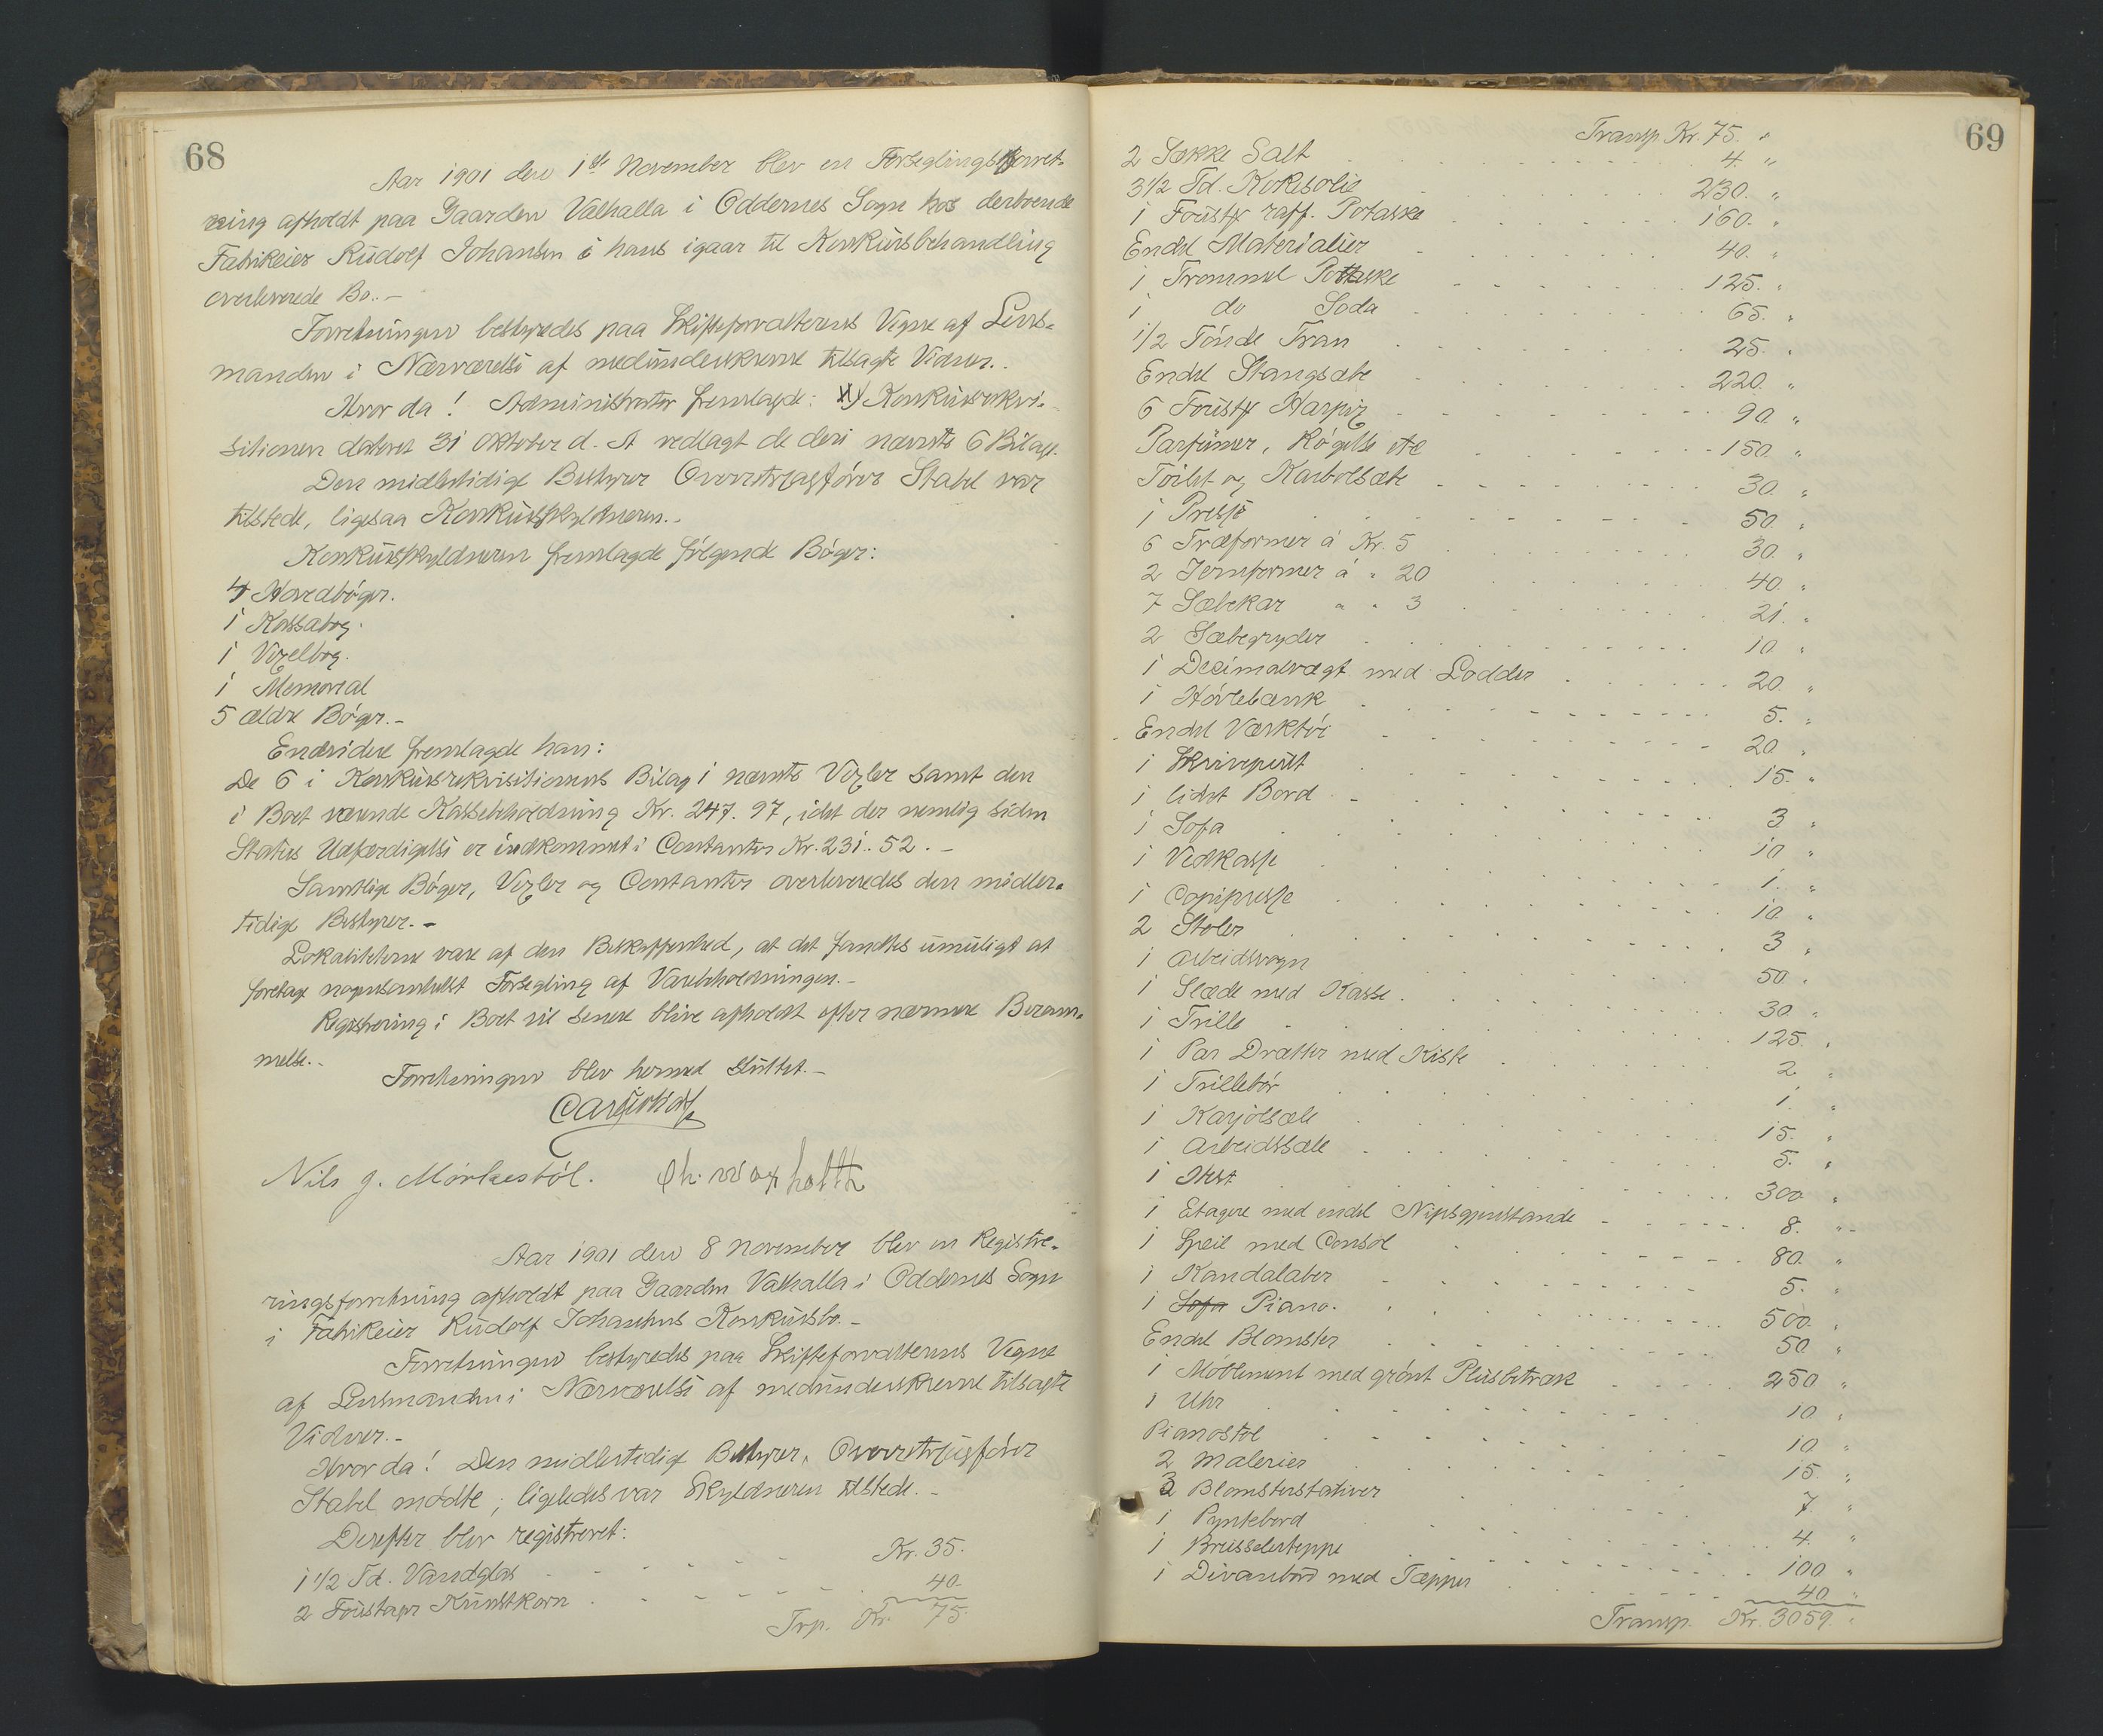 68
Aar 1901 den 1ste November blev en Forseglingsforret-
ning afholdt paa Gaarden Valhalla i Oddernes Sogn hos derboende
Fabrikeier Rudolf Johansen i hans igaar til Konkursbehandling
overleverede Bo.-
Forretningen bestyredes paa Skifteforvalterens Vegne af Lens-
manden i Nærværelse af medunderskrevne tilsagte Vidner.
Hvor da! Administrator fremlagde: Konkursrekvi-
sitionen dateret 31 Oktober d. A vedlagt de deri nævnte 6 Bilage.
Den midlertidige Bestyrer Overretssagfører Stabel var
tilstede, ligesaa Konkursskyldneren.-
Konkursskyldneren fremlagde følgende Bøger:
4 Hovedbøger.
1 Kassabog.
1 Vexelbog.
1 Memorial
5 ældre Bøger.-
Endvidere fremlagde han:
De 6 i Konkursrekvisitionens Bilag i nævnte Vexler samt den
i Boet værende Kassebeholdning Kr. 247.97, idet der nemlig siden
Status Udfærdigelse er indkommet i Contanter Kr. 231.52.-
Samtlige Bøger, Vexler og Contanter overleveredes den midler-
tidige Bestyrer.-
Lokaliteterne vare af den Beskaffenhed, at det fandtes umuligt at
foretage nogensomhelst Forsegling af Varebeholdningen.-
Registrering i Boet vil senere blive afholdt efter nærmere Beram-
melse.-
Forretningen blev hermed sluttet.-
Nils J. Mørkestøl.
Aar 1901 den 8 November blev en Registre-
ringsforretning afholdt paa Gaarden Valhalla i Oddernes Sogn
i Fabrikeier Rudolf Johansens Konkursbo.-
Forretningen bestyredes paa Skifteforvalterens Vegne
af Lensmanden i Nærværelse af medunderskrevne tilsagte
Vidner.-
Hvor da! Den midlertidige Bestyrer, Overretssagfører
Stabel mødte; ligeledes var Skyldneren tilstede.-
Derefter blev registreret:
1 1/2 Td. Vandglas Kr. 35.
2 Foustager Kunstkorn 40.
Trp. Kr. 75.
69
Transp. Kr. 75. "
2 Sække Salt 4. "
3 1/2 Td. Kokosolie 230. "
1 Foustg. raff. Potaske 160. "
Endel Materialier 40. "
1 Trommel Pottaske 125. "
1 do Soda 65. "
1/2 Tønde Tran 25. "
Endel Stangsæbe 220. "
6 Foustg Harpix 90 "
Parfumer, Røgelse etc 150. "
Toilet og Karbolsæbe 30. "
1 Presse 50 "
6 Træformer á Kr. 5 30. "
2 Jernformer á " 20 40. "
7 Sæbekar " " 3 21. "
2 Sæbegryder 10 "
1 Decimalvægt med Lodder 20. "
1 Høvlebænk 5. "
Endel Værktøi 20 "
1 Skrivepult 15. "
1 lidet Bord 3 "
1 Sofa 10 "
1 Vedkasse 1. "
1 Copipresse 10. "
2 Stoler 3 "
1 Arbeidsvogn 50. "
1 Slæde med Kasse 30 "
1 Trille 125. "
1 Par Drætter med Kiste 2. "
1 Trillebør 1. "
1 Karjolsæle 15. "
1 Arbeidssæle 5. "
1 Hest 300. "
1 Etagere med endel Nipsgjenstande 8. "
1 Speil med Consol 80. "
1 Kandalaber 5. "
1 Sofa Piano. 500. "
Endel Blomster 50 "
1 Møblement med grønt Plusbetræk 250. "
1 Uhr 10. "
Pianostol 10 "
2 Malerier 15. "
3 Blomsterstativer 7. "
1 Pyntebord 4. "
1 Brüsselerteppe 100 "
1 Divanbord med Tæppe 40 "
Transp. Kr. 3059. "